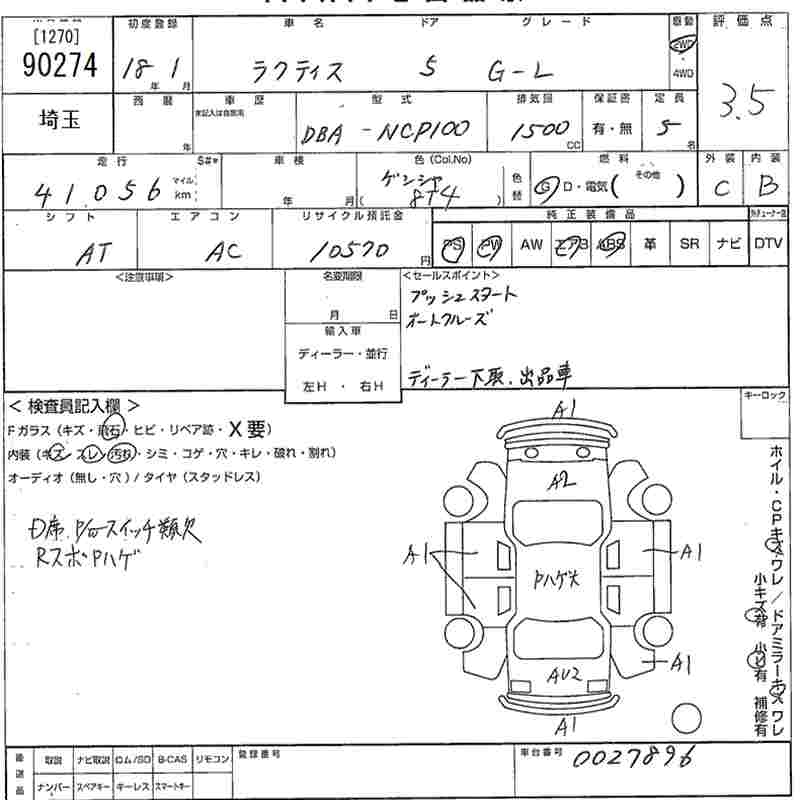 [1270]
90274
初度登録
18 年 1 月
車名
ラクティス
ドア
5
グレード
G-L
駆動
2WD
4WD
評価点
3.5
埼玉
西暦
年
車歴
未記入は自家用
型式
DBA-NCP100
排気量
1500 CC
保証書
有・無
定員
5 名
走行
$#*
41,056
マイル
km
車検
年 月
色 (Col.No)
ゲンシャ
( 8T4 )
色替
燃料
G D・電気( その他 )
外装
C
内装
B
シフト
AT
エアコン
AC
リサイクル預託金
10570 円
純正装備品
PS PW AW エアB ABS 革 SR ナビ
DTV
<注意事項>
名変期限
月 日
輸入車
ディーラー・並行
左H ・ 右H
<セールスポイント>
プッシュスタート
オートクルーズ
ディーラー下取、出品車
キーロック
< 検査員記入欄 >
Fガラス (キズ・飛石・ヒビ・リペア跡・X要)
内装 (キズ・スレ・汚れ・シミ・コゲ・穴・キレ・破れ・割れ)
オーディオ (無し・穴) / タイヤ (スタッドレス)
D席 P/Wスイッチ類欠
RスポPハゲ
A1
A2
A1
A1
Pハゲ大
A1
AU2
A1
ホイル・CPキズ・ワレ / ドアミラーキズ ワレ
小キズ有 小凹有 補修有
後送品
取説 ナビ取説 ロム/SD B-CAS リモコン
ナンバー スペアキー キーレス スマートキー
登録番号
車台番号
0027896